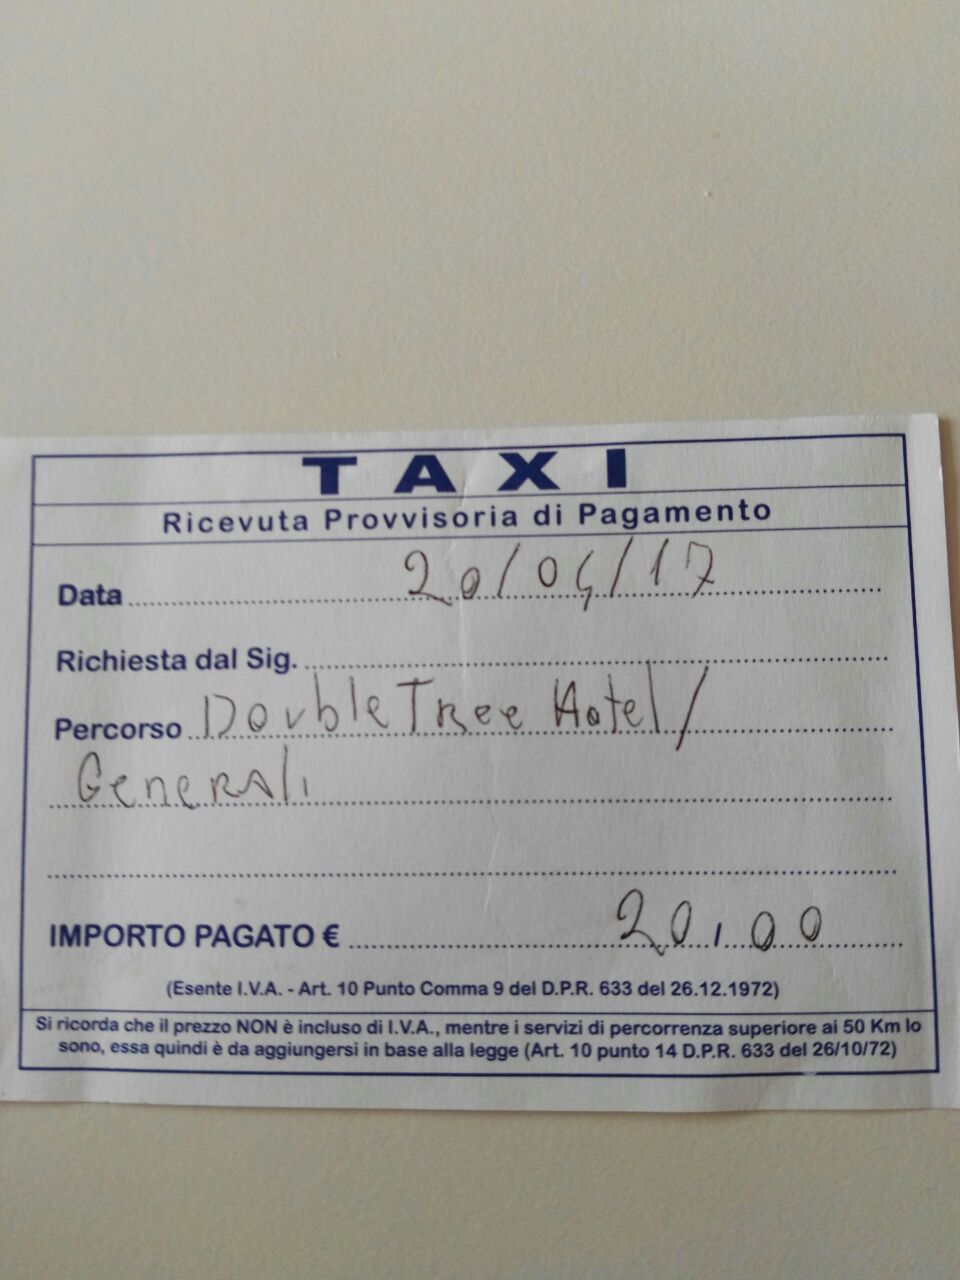 TAXI
Ricevuta Provvisoria di Pagamento
Data 20/04/17
Richiesta dal Sig.
Percorso DoubleTree Hotel/
Generali
IMPORTO PAGATO € 20,00
(Esente I.V.A. - Art. 10 Punto Comma 9 del D.P.R. 633 del 26.12.1972)
Si ricorda che il prezzo NON è incluso di I.V.A., mentre i servizi di percorrenza superiore ai 50 Km lo
sono, essa quindi è da aggiungersi in base alla legge (Art. 10 punto 14 D.P.R. 633 del 26/10/72)